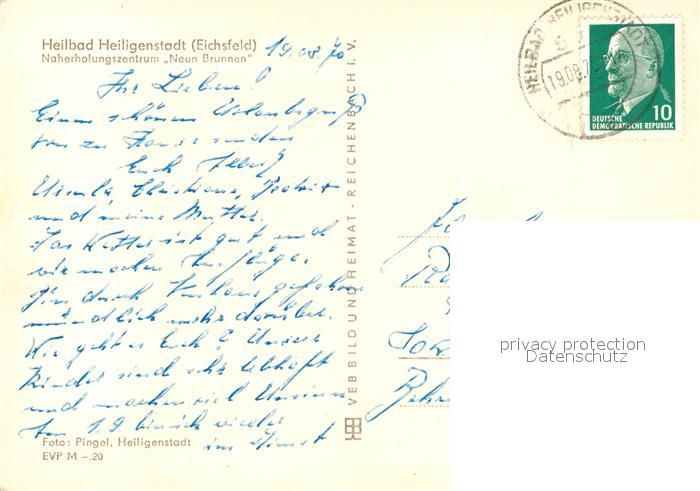 Heilbad Heiligenstadt (Eichsfeld)
Naherholungszentrum „Neun Brunnen"
19.08.70
Ihr Lieben!
Einen schönen Urlaubsgruß
von zu Hause senden
Euch
Ursula, Christiane,
und meine Mutter.
Das Wetter ist gut und
wir machen Ausflüge.
Bin durch gefahren
mündlich mehr darüber.
Wie geht es Euch? Unsere
Kinder sind sehr lebhaft
und machen viel Unsinn
Am 1.9. bin ich wieder
im Dienst
Foto: Pingel, Heiligenstadt
EVP M –.20
VEB BILD UND HEIMAT - REICHENBACH I. V.
HEILBAD HEILIGENSTADT
19.08.7
DEUTSCHE
DEMOKRATISCHE REPUBLIK
10
privacy protection
Datenschutz